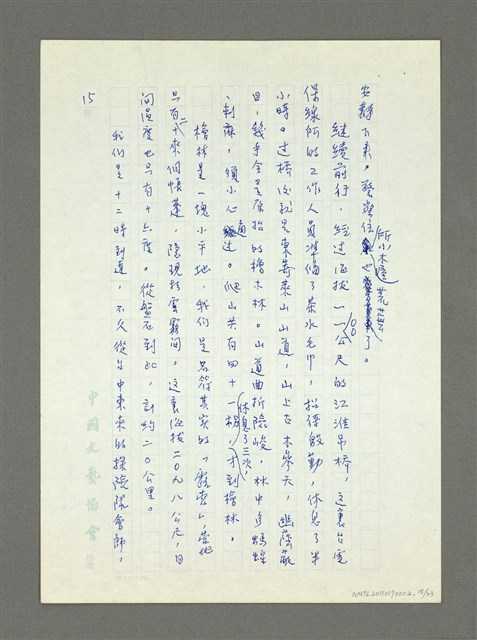 安靜下來,警察住所小木屋也荒蕪了。
繼續前行,經過海拔一一〇〇公尺的江淮吊橋,這裏台電
保線所的工作人員準備了茶水毛巾,招待殷勤,休息了半
小時。過橋後就是東壽萊山山道,山上古木參天,幽蔭蔽
日,幾乎全是原始的檜木林。山道曲折險峻,林中多螞蝗
、刺麻,須小心通過。爬山共有四十一拐,休息了三次,才到檜林。
檜林是一塊小平地,我們是名符其實的「露雲」,營地
只有二十來個帳蓬,隱現於雲霧間。這裏海拔二〇九八公尺,日
間溫度也只有十六度。從盤石到此,計約二〇公里。
我們是十二時到達,不久從台中東來的探險隊會師,
15
中國文藝協會
NMTL20110170002, 15/23